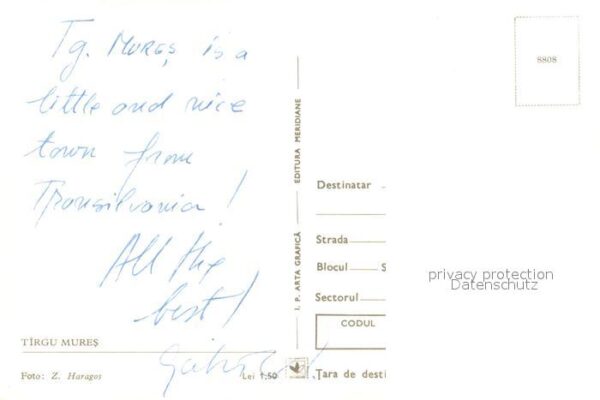 Tg. MUREŞ is a
little and nice
town from
Transilvania!
All the
best!
TÎRGU MUREŞ
Foto: Z. Haragos
Lei 1,50
I. P. ARTA GRAFICĂ
EDITURA MERIDIANE
8808
Destinatar
Strada
Blocul S
Sectorul
CODUL
Ţara de desti
privacy protection
Datenschutz